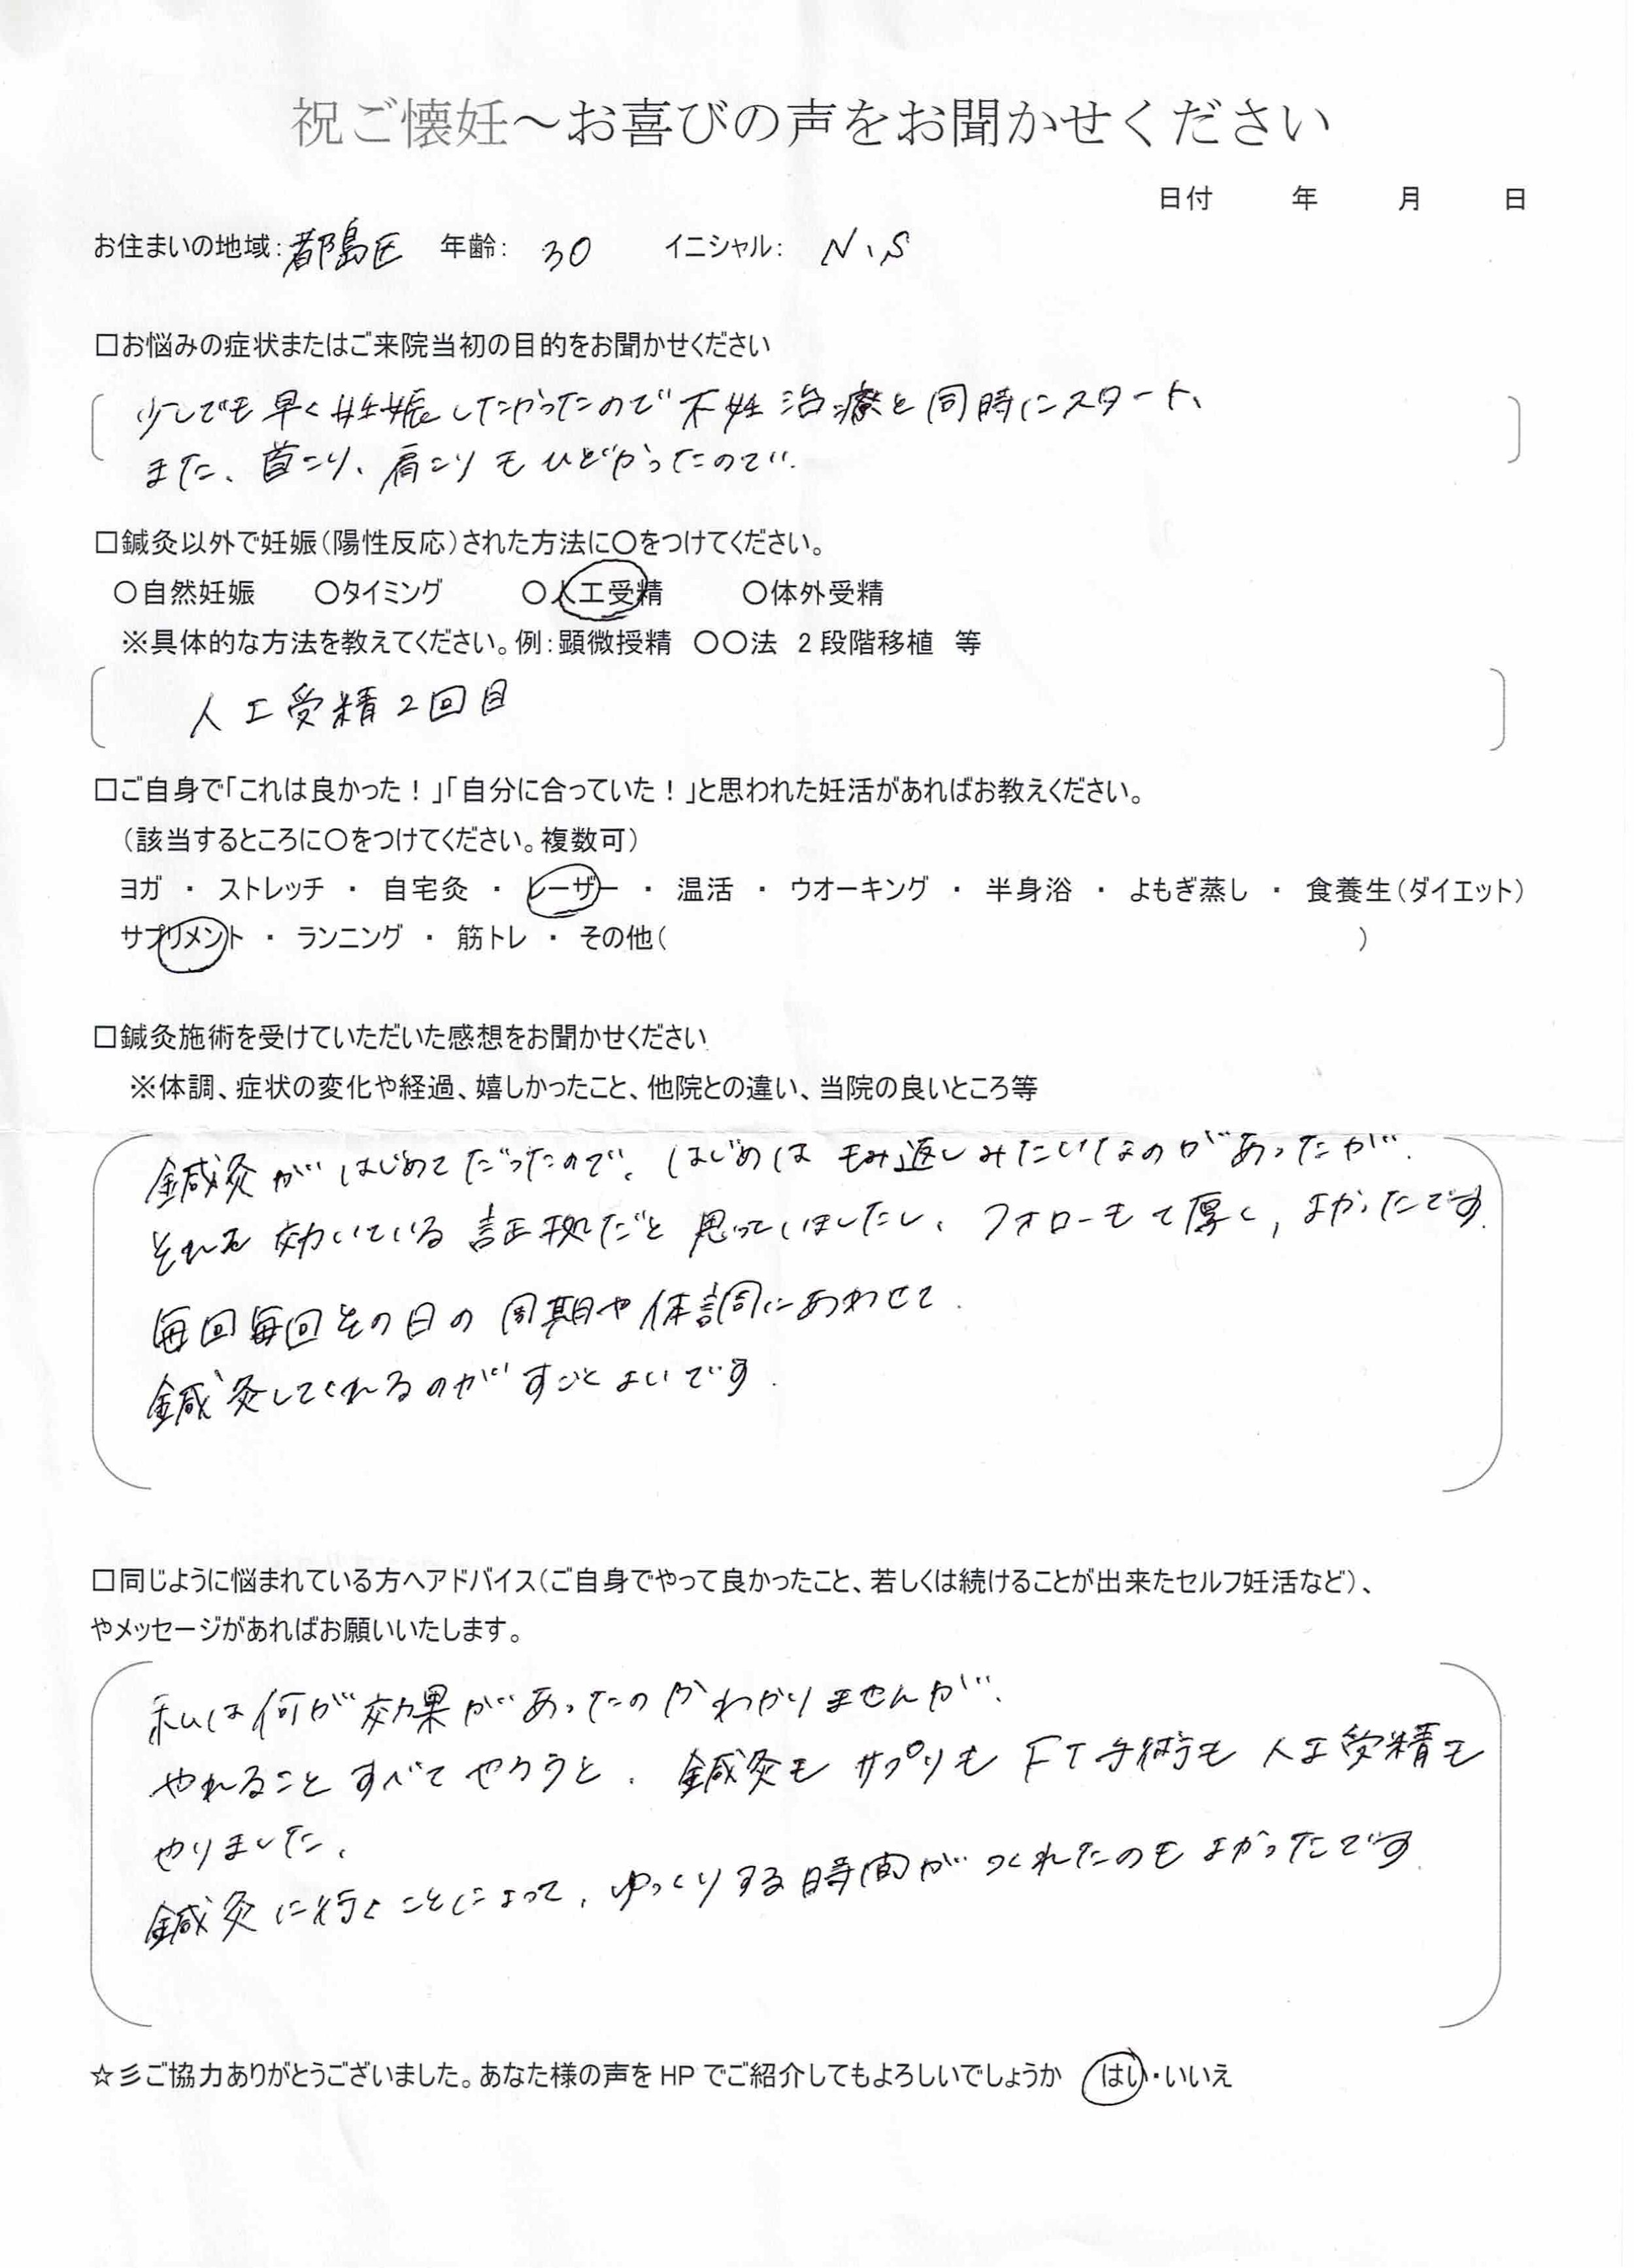 祝ご懐妊～お喜びの声をお聞かせください
日付　年　月　日
お住まいの地域：都島区　年齢：30　イニシャル：N、S
□お悩みの症状またはご来院当初の目的をお聞かせください
少しでも早く妊娠したかったので不妊治療と同時にスタート、
また、首こり、肩こりもひどかったので。
□鍼灸以外で妊娠（陽性反応）された方法に〇をつけてください。
〇自然妊娠　〇タイミング　〇人工受精　〇体外受精
※具体的な方法を教えてください。例：顕微授精　〇〇法　2段階移植　等
人工受精2回目
□ご自身で「これは良かった！」「自分に合っていた！」と思われた妊活があればお教えください。
（該当するところに〇をつけてください。複数可）
ヨガ ・ ストレッチ ・ 自宅灸 ・ レーザー ・ 温活 ・ ウオーキング ・ 半身浴 ・ よもぎ蒸し ・ 食養生（ダイエット）
サプリメント ・ ランニング ・ 筋トレ ・ その他（　）
□鍼灸施術を受けていただいた感想をお聞かせください
※体調、症状の変化や経過、嬉しかったこと、他院との違い、当院の良いところ等
鍼灸がはじめてだったので、はじめはもみ返しみたいなのがあったが、
それも効いている証拠だと思っていましたし、フォローもて厚く，よかったです。
毎回毎回その日の周期や体調にあわせて、
鍼灸してくれるのがすごくよいです。
□同じように悩まれている方へアドバイス（ご自身でやって良かったこと、若しくは続けることが出来たセルフ妊活など）、
やメッセージがあればお願いいたします。
私は何が効果があったのかわかりませんが、
やれることすべてやろうと、鍼灸もサプリもFT手術も人工受精も
やりました、
鍼灸に行くことによって、ゆっくりする時間がつくれたのもよかったです。
☆彡ご協力ありがとうございました。あなた様の声をHPでご紹介してもよろしいでしょうか　はい・いいえ